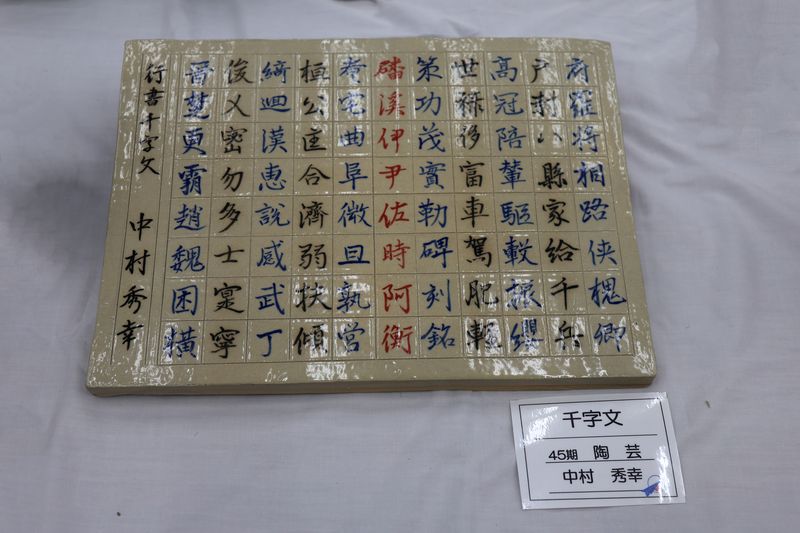 府羅将相路侠槐卿
戸封八縣家給千兵
高冠陪輦驅轂振纓
世禄侈富車駕肥軽
策功茂實勒碑刻銘
磻溪伊尹佐時阿衡
奄宅曲阜微旦孰営
桓公匡合濟弱扶傾
綺迴漢恵説感武丁
俊乂密勿多士寔寧
晋楚更霸趙魏困横
行書千字文 中村秀幸
千字文
45期 陶芸
中村 秀幸